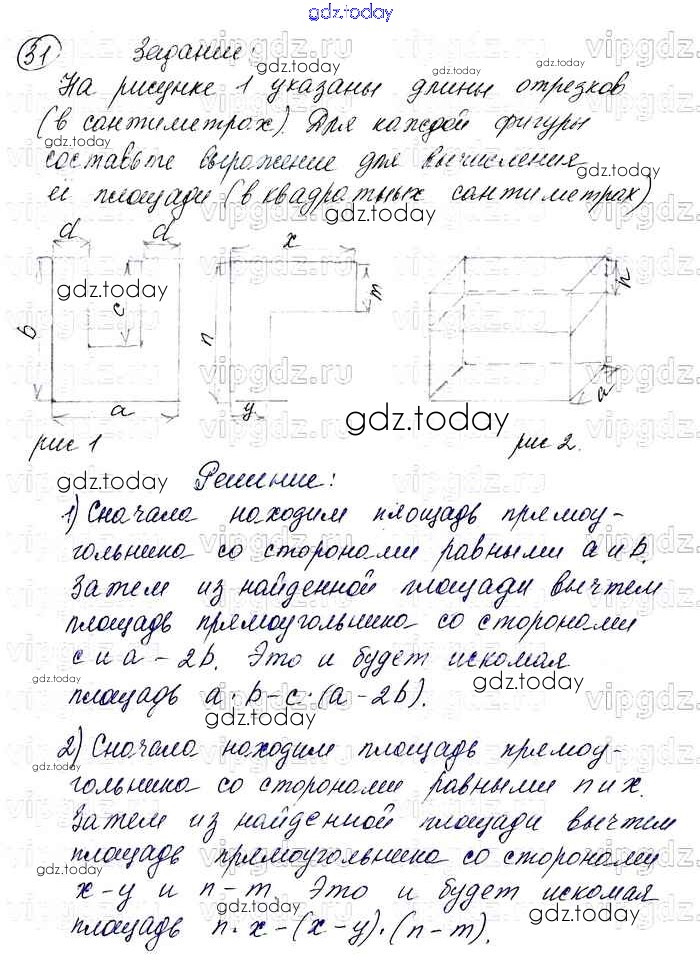 gdz.today
31 Задание:
На рисунке 1 указаны длины отрезков
(в сантиметрах). Для каждой фигуры
составьте выражение для вычисления
её площади (в квадратных сантиметрах)
d d x
b c n m n
a y a
рис 1 рис 2.
Решение:
1) Сначала находим площадь прямоу-
гольника со сторонами равными a и b.
Затем из найденной площади вычтем
площадь прямоугольника со сторонами
c и a - 2b. Это и будет искомая
площадь a · b - c · (a - 2b).
2) Сначала находим площадь прямоу-
гольника со сторонами равными n и x.
Затем из найденной площади вычтем
площадь прямоугольника со сторонами
x - y и n - m. Это и будет искомая
площадь n · x - (x - y) · (n - m).